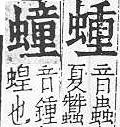 蝩
音蟲
夏蠶
𧑆
音鍾
蝗也